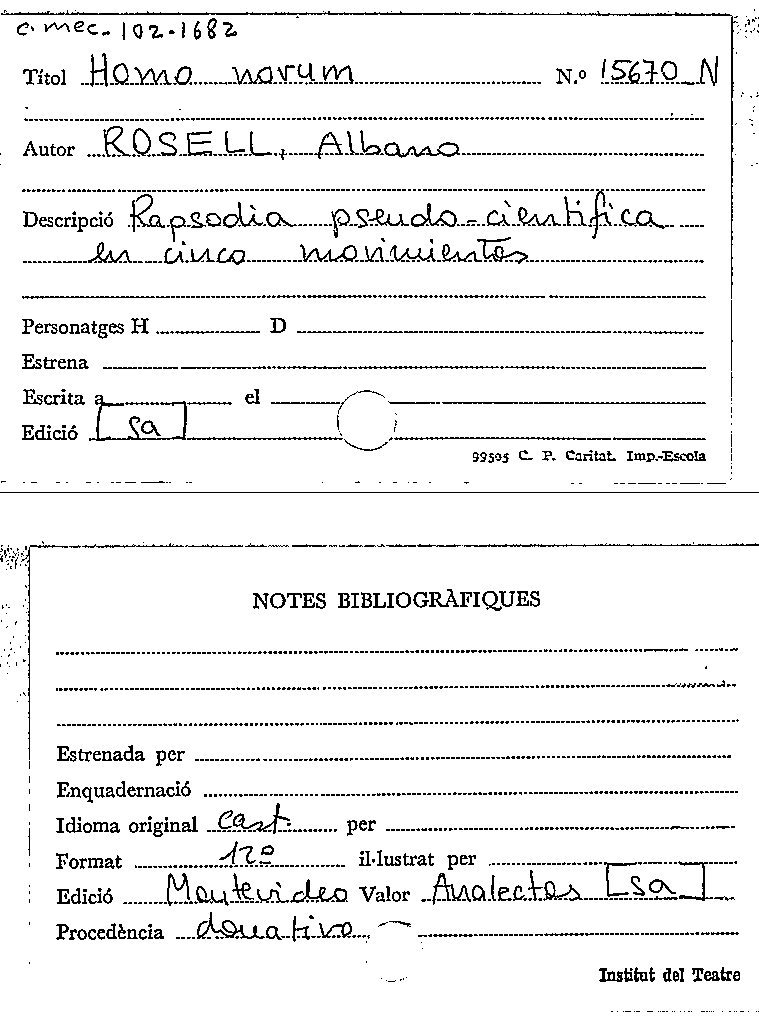 C. mec. 102-1682
Títol Homo novum N.º 15670 N
Autor ROSELL, Albano
Descripció Rapsodia pseudo-cientifica
en cinco movimientos
Personatges H D
Estrena
Escrita a el
Edició [sa]
99505 C. P. Caritat. Imp.-Escola
NOTES BIBLIOGRÀFIQUES
Estrenada per
Enquadernació
Idioma original cast. per
Format 12º il·lustrat per
Edició Montevideo Valor Analectos [sa]
Procedència donativo
Institut del Teatre